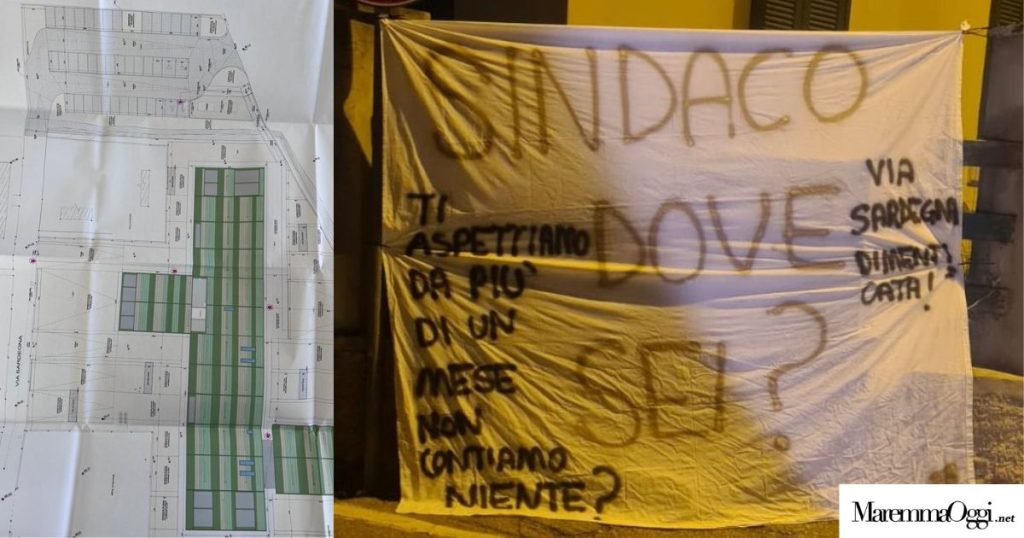 VIA SARDEGNA
SINDACO
DOVE
SEI?
TI
ASPETTIAMO
DA PIÙ
DI UN
MESE
NON
CONTIAMO
NIENTE?
VIA
SARDEGNA
DIMENTI
CATA!
MaremmaOggi.net